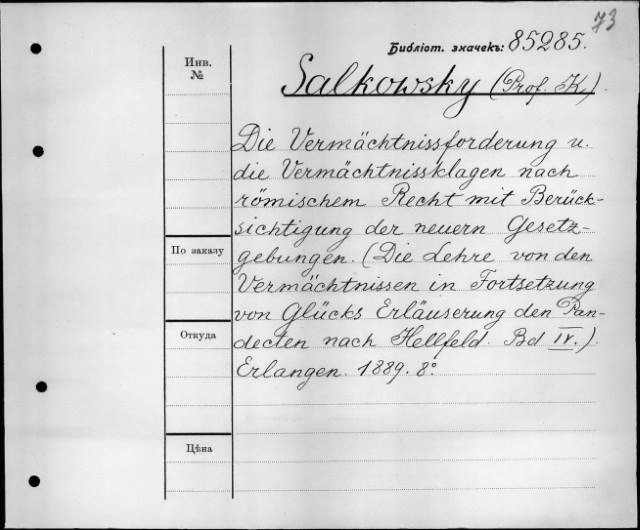 73
Библіот. значекъ: 85285.
Инв.
№
Salkowsky (Prof. K.).
Die Vermächtnissforderung u.
die Vermächtnissklagen nach
römischem Recht mit Berück-
sichtigung der neuern Gesetz-
По заказу
gebungen. (Die Lehre von den
Vermächtnissen in Fortsetzung
von Glücks Erläuserung den Pan-
Откуда
decten nach Hellfeld. Bd IV.).
Erlangen. 1889. 8º
Цѣна